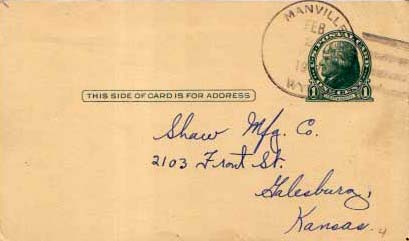 MANVILLE
FEB
19
WYO
U·S·POSTAL CARD
1 1
THIS SIDE OF CARD IS FOR ADDRESS
Shaw Mfg. Co.
2103 Front St.
Galesburg,
Kansas.
4